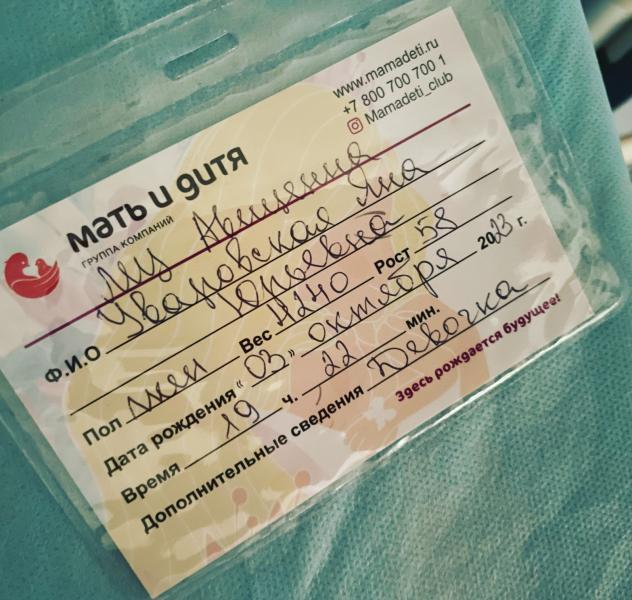 www.mamadeti.ru
+7 800 700 700 1
Mamadeti_club
мать и дитя
ГРУППА КОМПАНИЙ
МЦ Авиценна
Ф.И.О Уваровская Яна
Юрьевна
Пол жен Вес 4240 Рост 58
Дата рождения "03" октября 2023 г.
Время 19 ч. 22 мин.
Дополнительные сведения Девочка
Здесь рождается будущее!